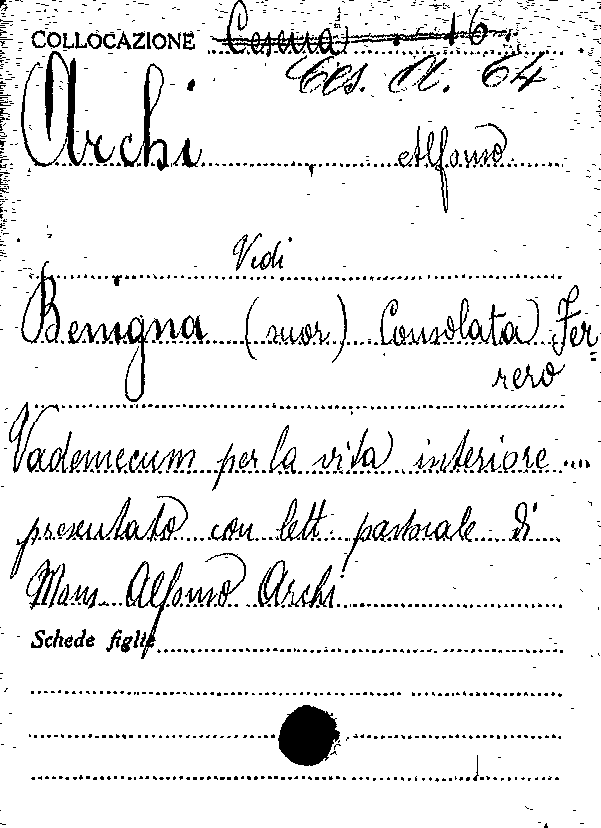 COLLOCAZIONE Cesena . 16.
Ces. A. 64
Archi , Alfonso
Vedi
Benigna (suor) Consolata Fer=
rero
Vademecum per la vita interiore ...
presentato con lett. pastorale di
Mons. Alfonso Archi
Schede figlie